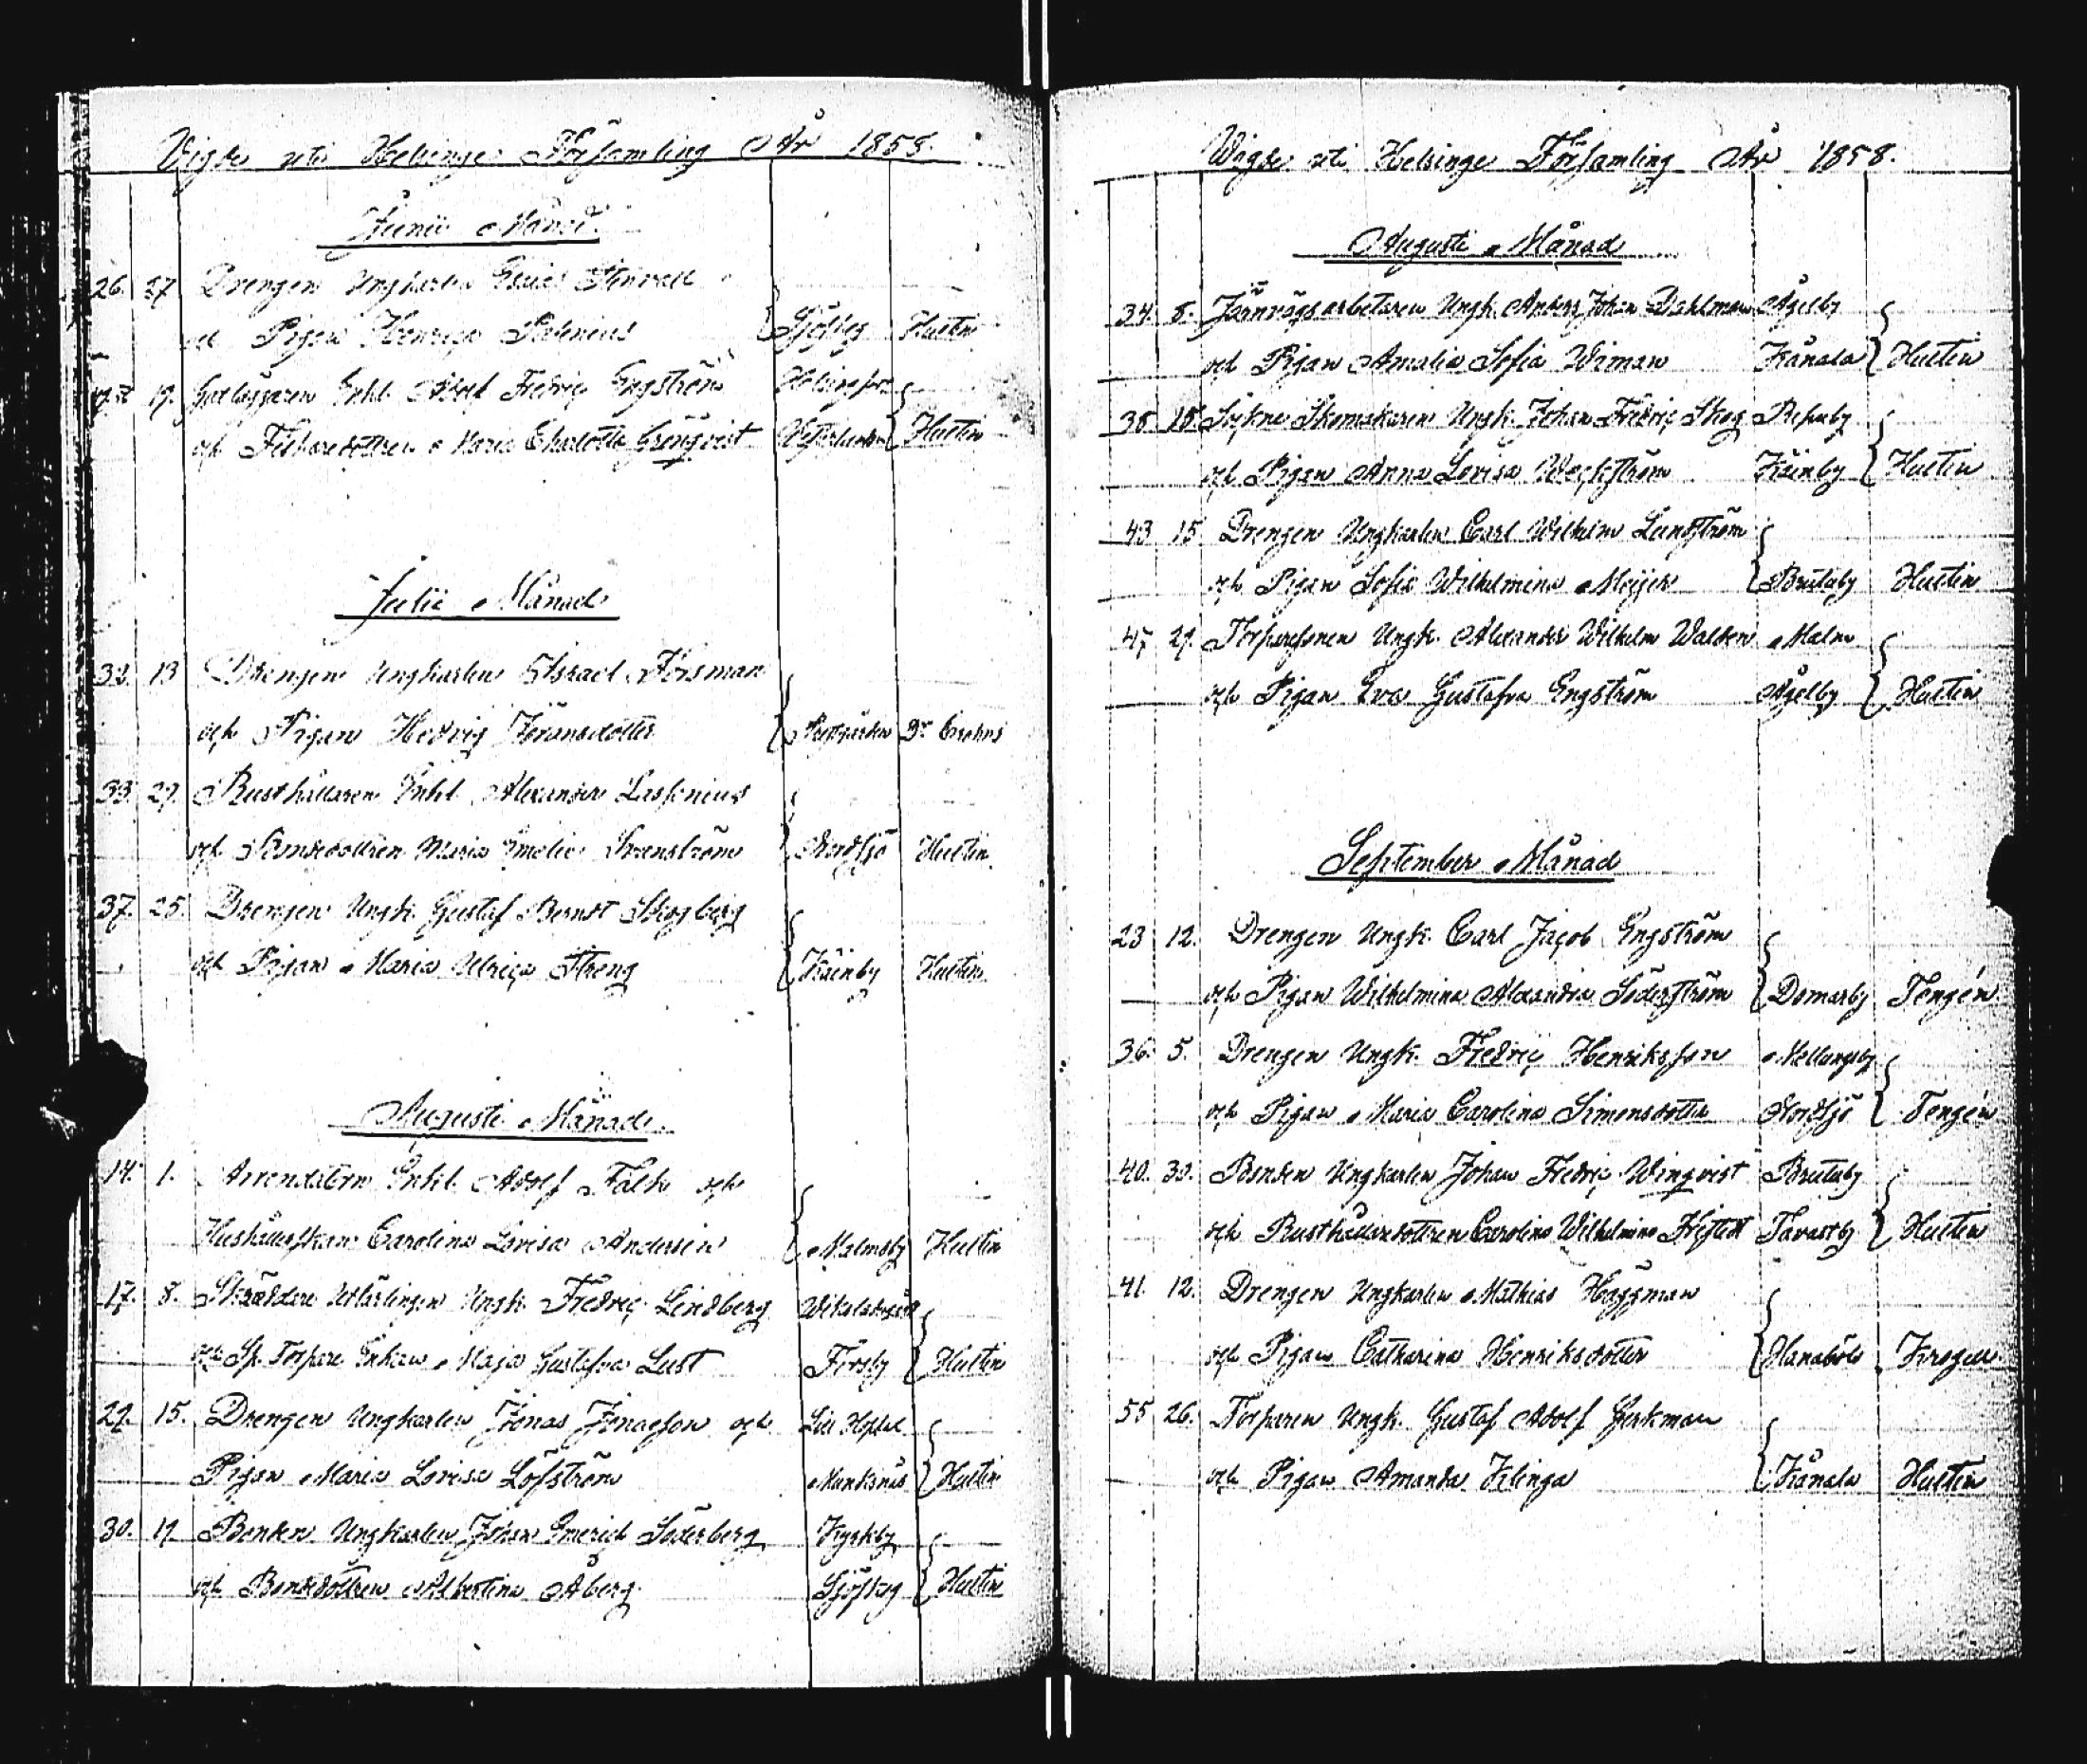 Vigde uti Helsinge Församling År 1858.
Junii Månad.
26. 27 Drengen Ungkarlen Stenvall
och Pigan Henrica Selenius Sjöskog Hultin
19. Garfvaren Enkl. Adolf Fredric Engström Helsingfors
och Fiskaredottren Maria Charlotta Grönqvist Hultin
Julii Månad
32. 13 Drengen Ungkarlen Israel Forsman
och Pigan Hedvig Göransdotter Prestgården Dr Crohns
33. 27. Rusthållaren Enkl. Alexander Lassenius
och Bondedottren Maria Emelie Svenström Nordsjö Hultin
37. 25. Drengen Ungk. Gustaf Berndt Skogberg
och Pigan Maria Ulrica Streng Käinby Hultin
Augusti Månad.
14. 1. Arrendatorn Enkl. Adolf Falk och
Hushållerskan Carolina Lovisa Andersin Malmsby Hultin
17. 8. Skräddare Utlärlingen Ungk. Fredric Lindberg
och Sp. Torpare Enkan Maja Gustafva Lust Forsby Hultin
29. 15. Drengen Ungkarlen Jonas Jonasson och Lill Hoplax
Pigan Maria Lovisa Löfström Munksnäs Hultin
30. 19. Bonden Ungkarlen Johan Emerich Söderberg Kyrkby
och Bondedottren Albertina Åberg Sjöskog Hultin
Wigde uti Helsinge Församling År 1858.
Augusti Månad
34. 8. Jernvägsarbetaren Ungk. Anders Johan Dahlman Ågelby
och Pigan Amalia Sofia Wiman Kånala Hultin
38. 15. Sockne Skomakaren Ungk. Johan Fredric Skog Repuby
och Pigan Anna Lovisa Weckström Käinby Hultin
43 15. Drengen Ungkarlen Carl Wilhelm Lundström
och Pigan Sofia Wilhelmina Meijer Brutuby Hultin
47 29. Torparesonen Ungk. Alexander Wilhelm Walden Malm
och Pigan Eva Gustafva Engström Ågelby Hultin
September Månad
23 12. Drengen Ungk. Carl Jacob Engström
och Pigan Wilhelmina Alexandra Söderström Domarby Tengén
36. 5. Drengen Ungk. Fredric Henriksson Mellungsby
och Pigan Maria Carolina Simonsdotter Nordsjö Tengén
40. 30. Bonden Ungkarlen Johan Fredric Winqvist Brutuby
och Rusthållaredottren Carolina Wilhelmina Tavastby Hultin
41. 12. Drengen Ungkarlen Mathias Häggman
och Pigan Catharina Henriksdotter Hanaböle Krogell
55 26. Torparen Ungk. Gustaf Adolf Gerkman
och Pigan Amanda Klinga Kånala Hultin